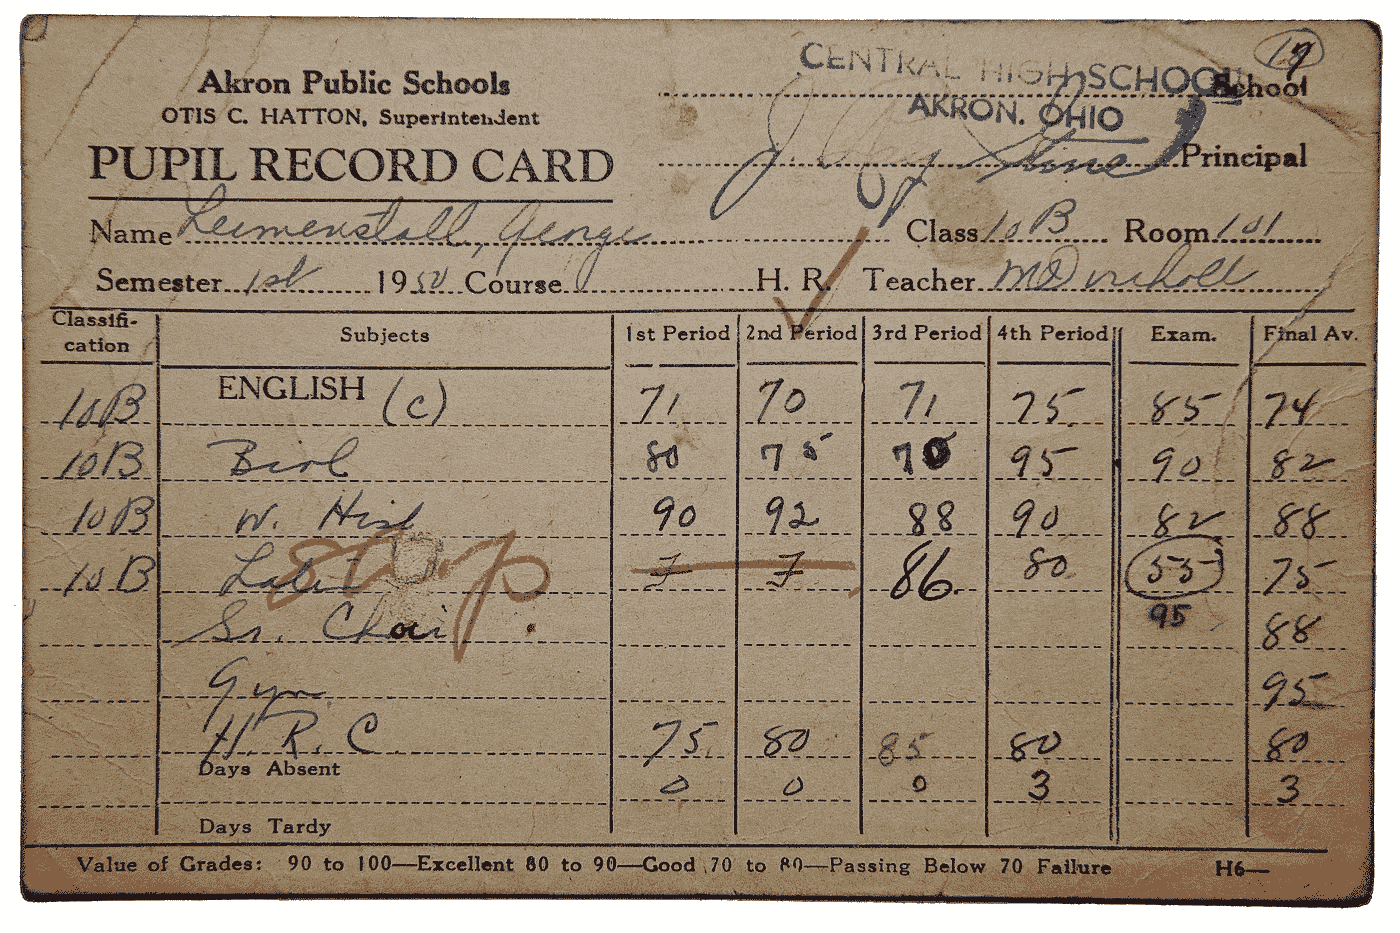 CENTRAL HIGH SCHOOL 19
Akron Public Schools School
OTIS C. HATTON, Superintendent AKRON, OHIO
PUPIL RECORD CARD J. Principal
Name Leimenstall, George Class 10B Room 101
Semester 1st 1950 Course H. R. Teacher
Classifi-cation Subjects 1st Period 2nd Period 3rd Period 4th Period Exam. Final Av.
10B ENGLISH (c) 71 70 71 75 85 74
10B Biol 80 75 70 95 90 82
10B W. Hist 90 92 88 90 82 88
10B Latin F F 86 80 55 75
Sr. Choir 95 88
Gym 95
H. R. C. 75 80 85 80 80
Days Absent 0 0 0 3 3
Days Tardy
Value of Grades: 90 to 100—Excellent 80 to 90—Good 70 to 80—Passing Below 70 Failure H6—